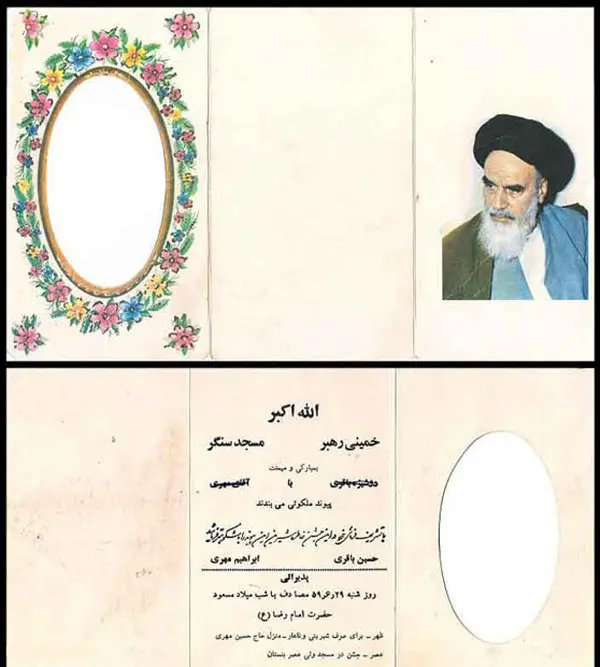 الله اکبر
خمینی رهبر مسجد سنگر
بمبارکی و میمنت
دوشیزه باقری با آقای مهری
پیوند ملکوتی می بندند
با تشریف فرمائی خود در این جشن
حسین باقری ابراهیم مهری
پذیرائی
روز شنبه ۵۹ر۶ر۲۹ مصادف با شب میلاد مسعود
حضرت امام رضا (ع)
ظهر ـ برای صرف شیرینی و ناهار ـ منزل حاج حسین مهری
عصر ـ جشن در مسجد ولی عصر بنستان